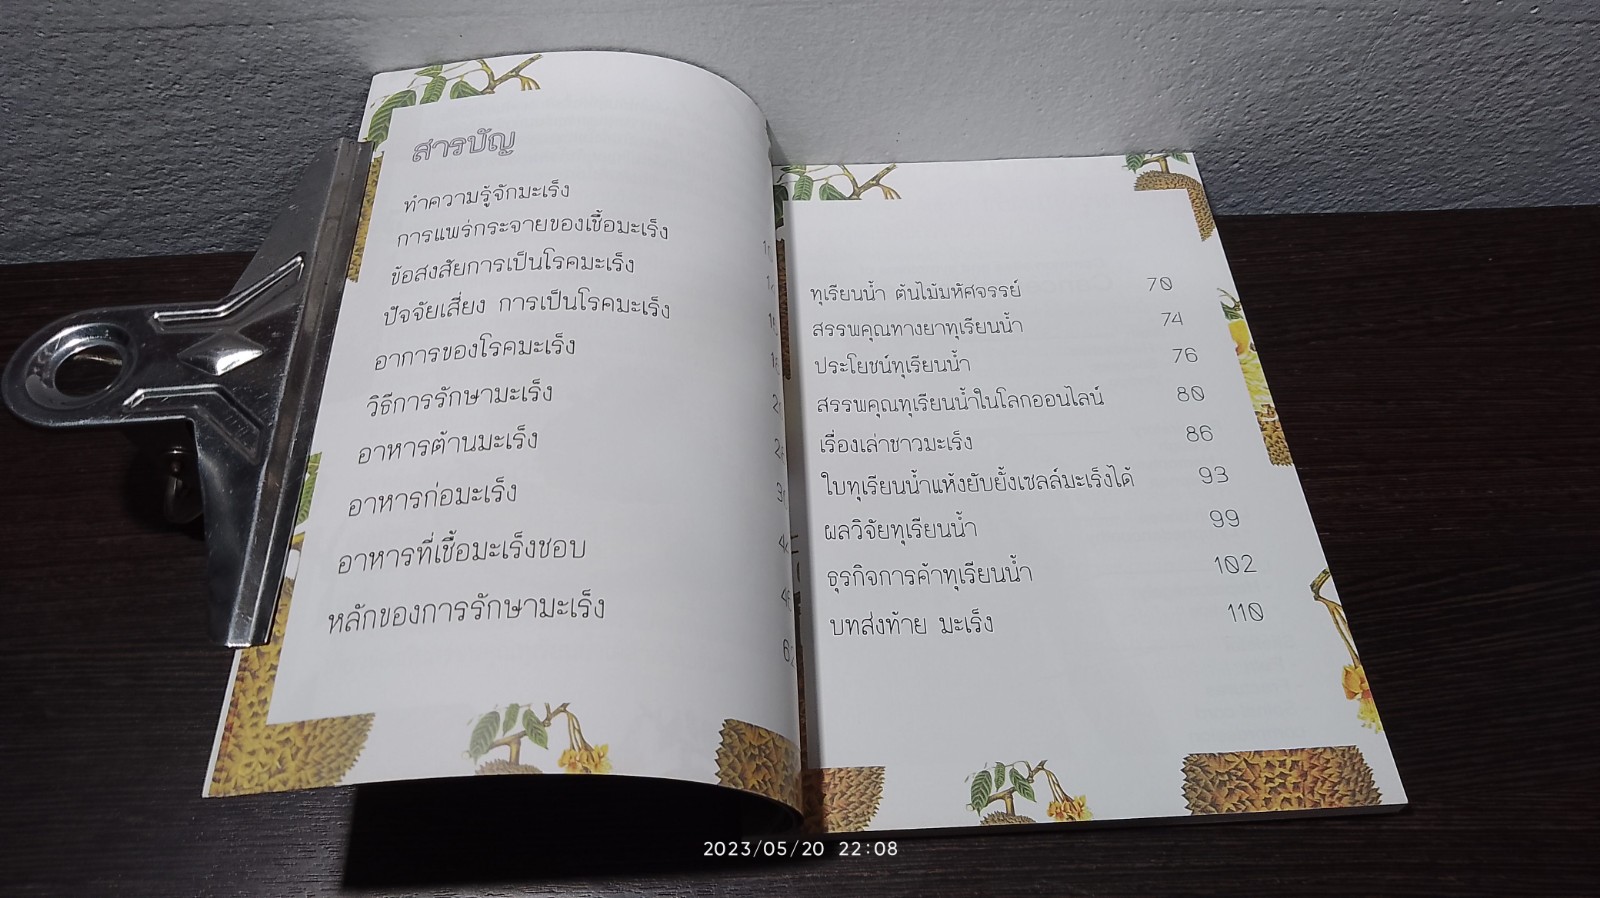 สารบัญ
ทำความรู้จักมะเร็ง
การแพร่กระจายของเชื้อมะเร็ง
ข้อสงสัยการเป็นโรคมะเร็ง
ปัจจัยเสี่ยง การเป็นโรคมะเร็ง
อาการของโรคมะเร็ง
วิธีการรักษามะเร็ง
อาหารต้านมะเร็ง
อาหารก่อมะเร็ง
อาหารที่เชื้อมะเร็งชอบ
หลักของการรักษามะเร็ง
ทุเรียนน้ำ ต้นไม้มหัศจรรย์ 70
สรรพคุณทางยาทุเรียนน้ำ 74
ประโยชน์ทุเรียนน้ำ 76
สรรพคุณทุเรียนน้ำในโลกออนไลน์ 80
เรื่องเล่าชาวมะเร็ง 86
ใบทุเรียนน้ำแห้งยับยั้งเซลล์มะเร็งได้ 93
ผลวิจัยทุเรียนน้ำ 99
ธุรกิจการค้าทุเรียนน้ำ 102
บทส่งท้าย มะเร็ง 110
2023/05/20 22:08